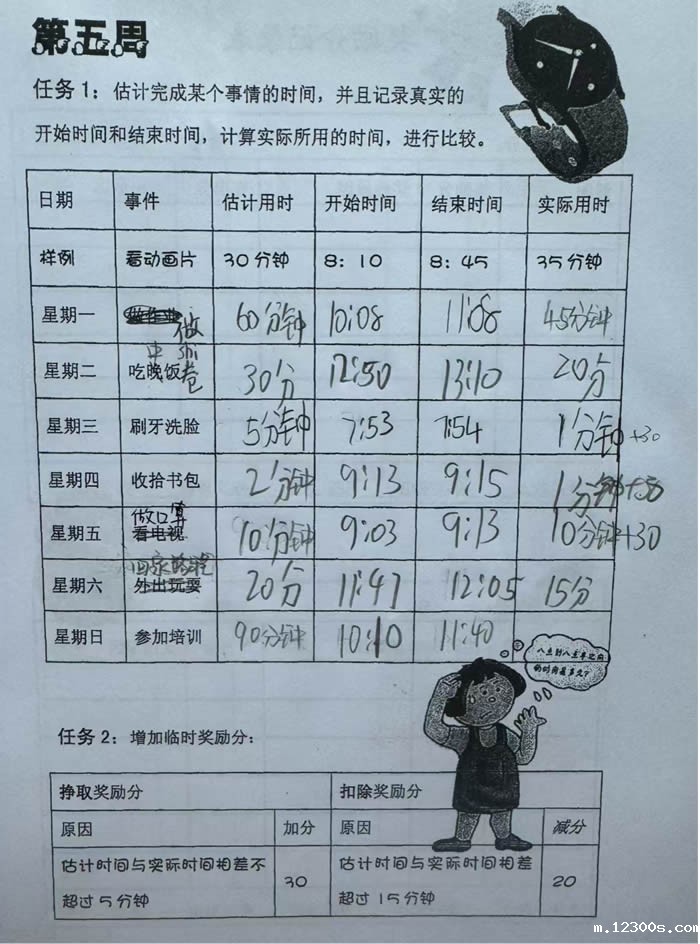 第五周
任务1：估计完成某个事情的时间，并且记录真实的
开始时间和结束时间，计算实际所用的时间，进行比较。
日期 事件 估计用时 开始时间 结束时间 实际用时
样例 看动画片 30分钟 8：10 8：45 35分钟
星期一 做 60分钟 10:08 11:08 45分钟
星期二 吃晚饭 卷 30分 12:50 13:10 20分
星期三 刷牙洗脸 5分钟 7:53 7:54 1分钟+30
星期四 收拾书包 2分钟 9:13 9:15 1分钟+30
做口算
星期五 看电视 10分钟 9:03 9:13 10分钟+30
回家
星期六 外出玩耍 20分 11:47 12:05 15分
星期日 参加培训 90分钟 10:10 11:40
八点到八点半之间
的时间是多久？
任务2：增加临时奖励分：
挣取奖励分 扣除奖励分
原因 加分 原因 减分
估计时间与实际时间相差不 30 估计时间与实际时间相差 20
超过5分钟 超过15分钟
m.12300s.com